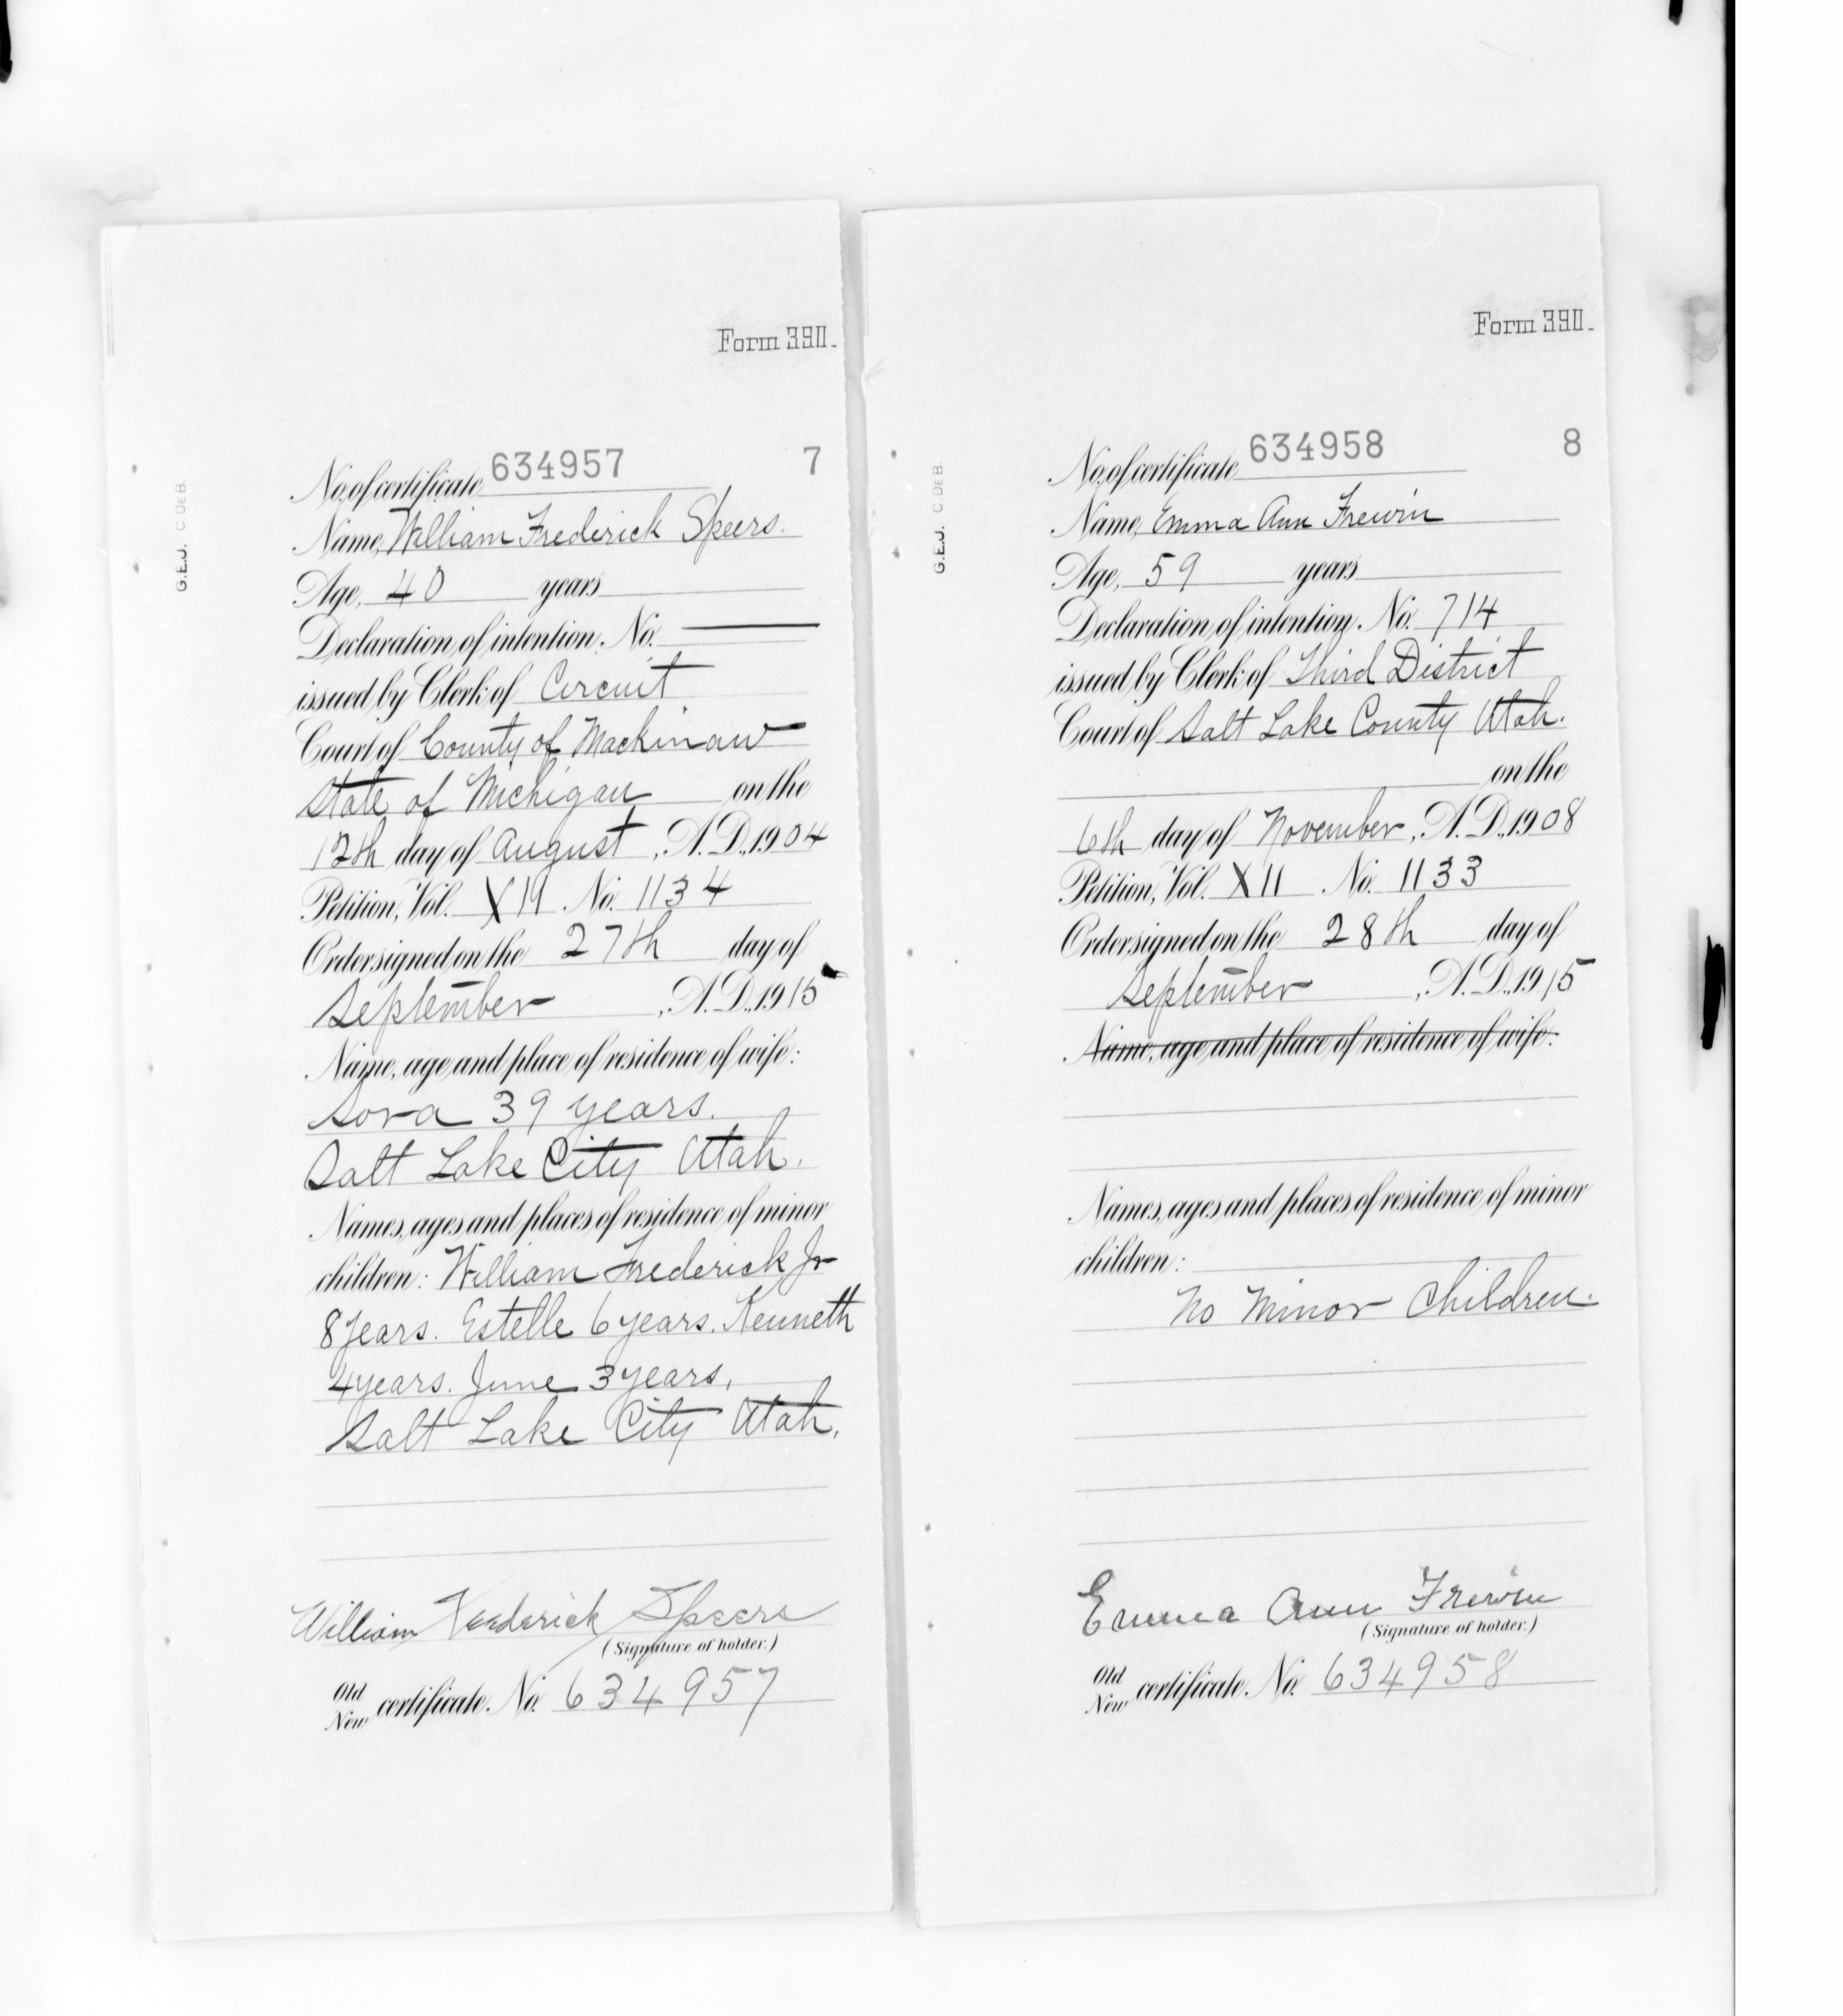 Form 390.
No. of certificate 634957 7
Name, William Frederick Speers.
Age, 40 years
Declaration of intention, No. —
issued by Clerk of Circuit
Court of County of Mackinaw
State of Michigan on the
12th day of August, A. D., 1904
Petition, Vol. X19 No. 1134
Order signed on the 27th day of
September, A. D., 1915
Name, age and place of residence of wife:
Sova 39 years.
Salt Lake City Utah.
Names, ages and places of residence of minor
children: William Frederick Jr
8 years. Estelle 6 years. Kenneth
4 years. June 3 years,
Salt Lake City Utah.
William Frederick Speers
(Signature of holder.)
Old
New certificate. No. 634957
G.E.J. C.DEB.
Form 390.
No. of certificate 634958 8
Name, Emma Ann Frewin
Age, 59 years
Declaration of intention, No. 714
issued by Clerk of Third District
Court of Salt Lake County Utah.
on the
6th day of November, A. D., 1908
Petition, Vol. X11 No. 1133
Order signed on the 28th day of
September, A. D., 1915
Name, age and place of residence of wife:
Names, ages and places of residence of minor
children:
No Minor Children.
Emma Ann Frewin
(Signature of holder.)
Old
New certificate. No. 634958
G.E.J. C.DEB.